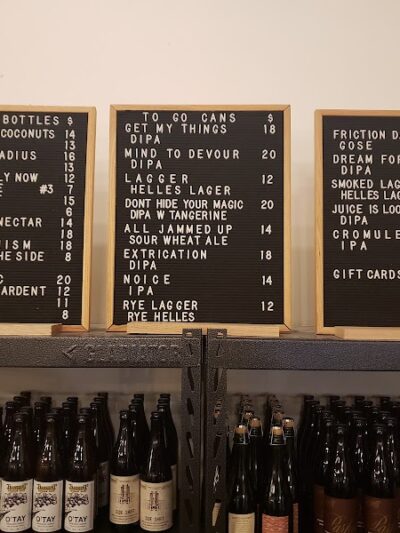 BOTTLES $
COCONUTS 14
13
ADIUS 16
13
LY NOW 12
E #3 7
15
6
NECTAR 14
18
UISM 18
THE SIDE 8
C 20
ARDENT 12
11
8
TO GO CANS $
GET MY THINGS 18
DIPA
MIND TO DEVOUR 20
DIPA
LAGGER 12
HELLES LAGER
DONT HIDE YOUR MAGIC 20
DIPA W TANGERINE
ALL JAMMED UP 14
SOUR WHEAT ALE
EXTRICATION 18
DIPA
NOICE 14
IPA
RYE LAGGER 12
RYE HELLES
FRICTION DA
GOSE
DREAM FOR
DIPA
SMOKED LAG
HELLES LAG
JUICE IS LOO
DIPA
CROMULE
IPA
GIFT CARDS
GLADIATOR
O'TAY
O'TAY
O'TAY